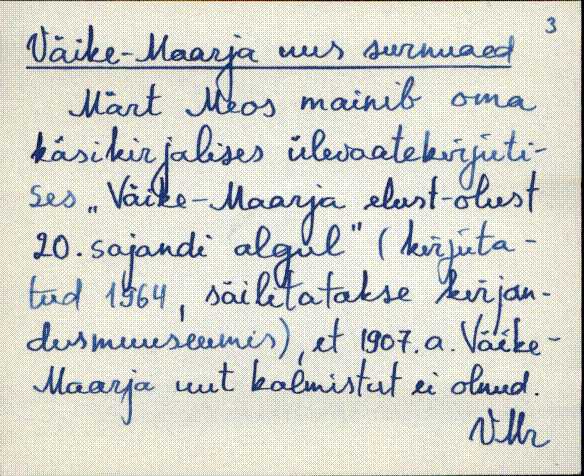 3
Väike-Maarja uus surnuaed
Märt Meos mainib oma
käsikirjalises ülevaatekirjuti-
ses „Väike-Maarja elust-olust
20. sajandi algul" (kirjuta-
tud 1964, säiletatakse kirjan-
dusmuuseumis), et 1907. a. Väike-
Maarja uut kalmistut ei olnud.
VMr